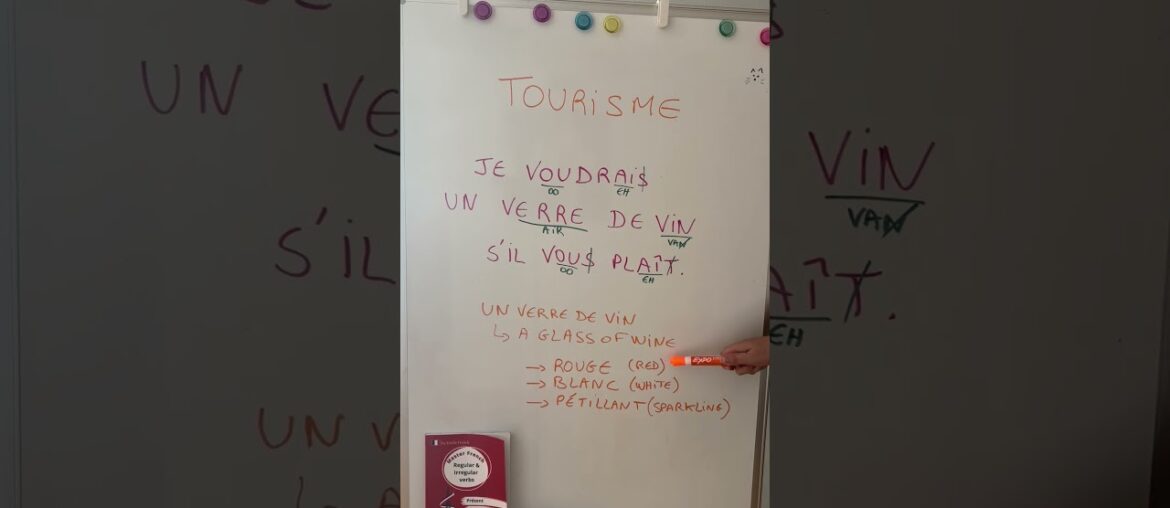 TOURISME
JE VOUDRAIS
OO EH
UN VERRE DE VIN
AIR VAN
S'IL VOUS PLAÎT.
OO EH
UN VERRE DE VIN
↳ A GLASS OF WINE
→ ROUGE (RED)
→ BLANC (WHITE)
→ PÉTILLANT (SPARKLING)
EXPO
Master French
Regular &
Irregular
verbs
Présent
UN VE
VIN
VAN
S'IL
AÎT.
EH
UN V